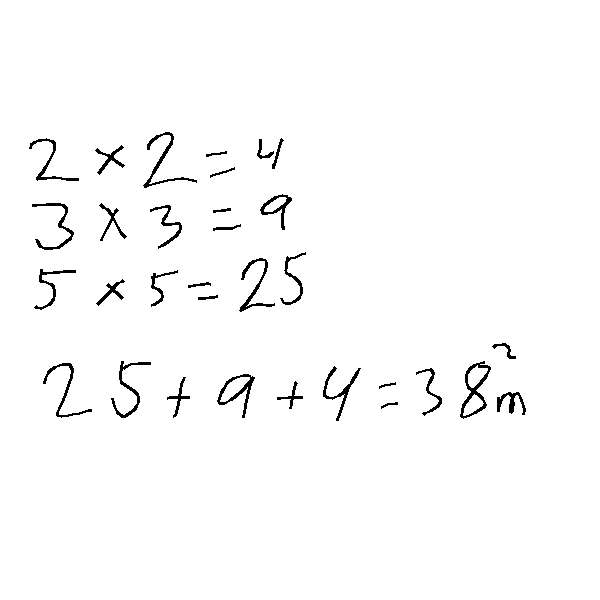 2 × 2 = 4
3 × 3 = 9
5 × 5 = 25
25 + 9 + 4 = 38 m²